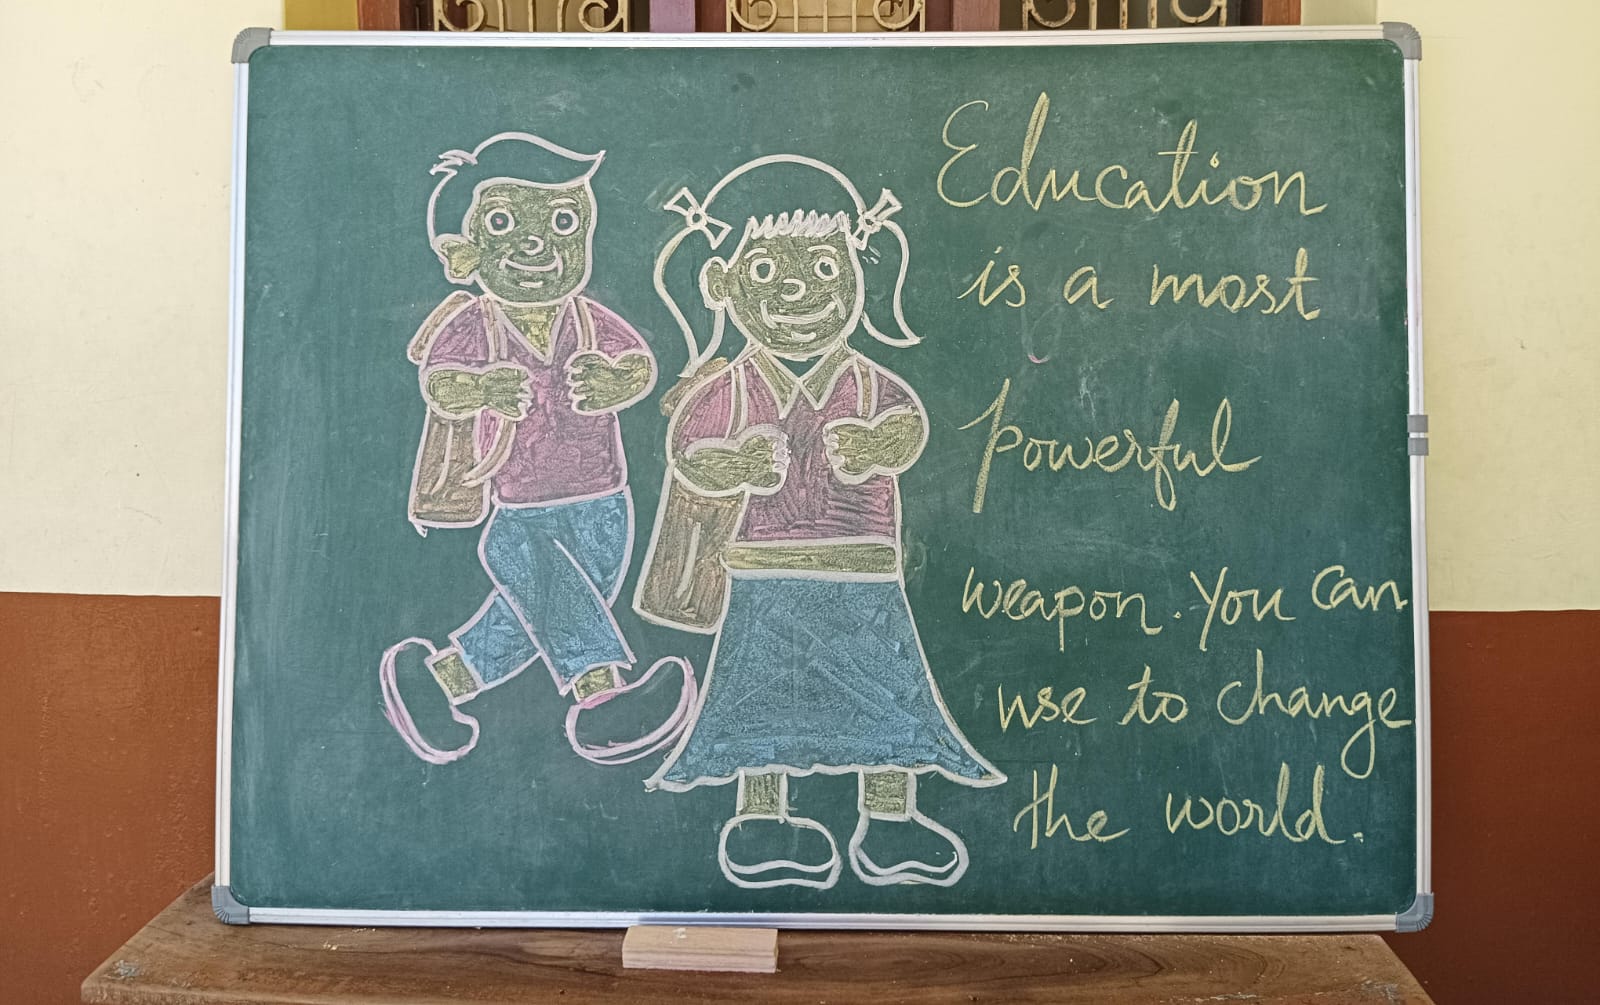 Education
is a most
powerful
weapon. You can
use to change
the world.